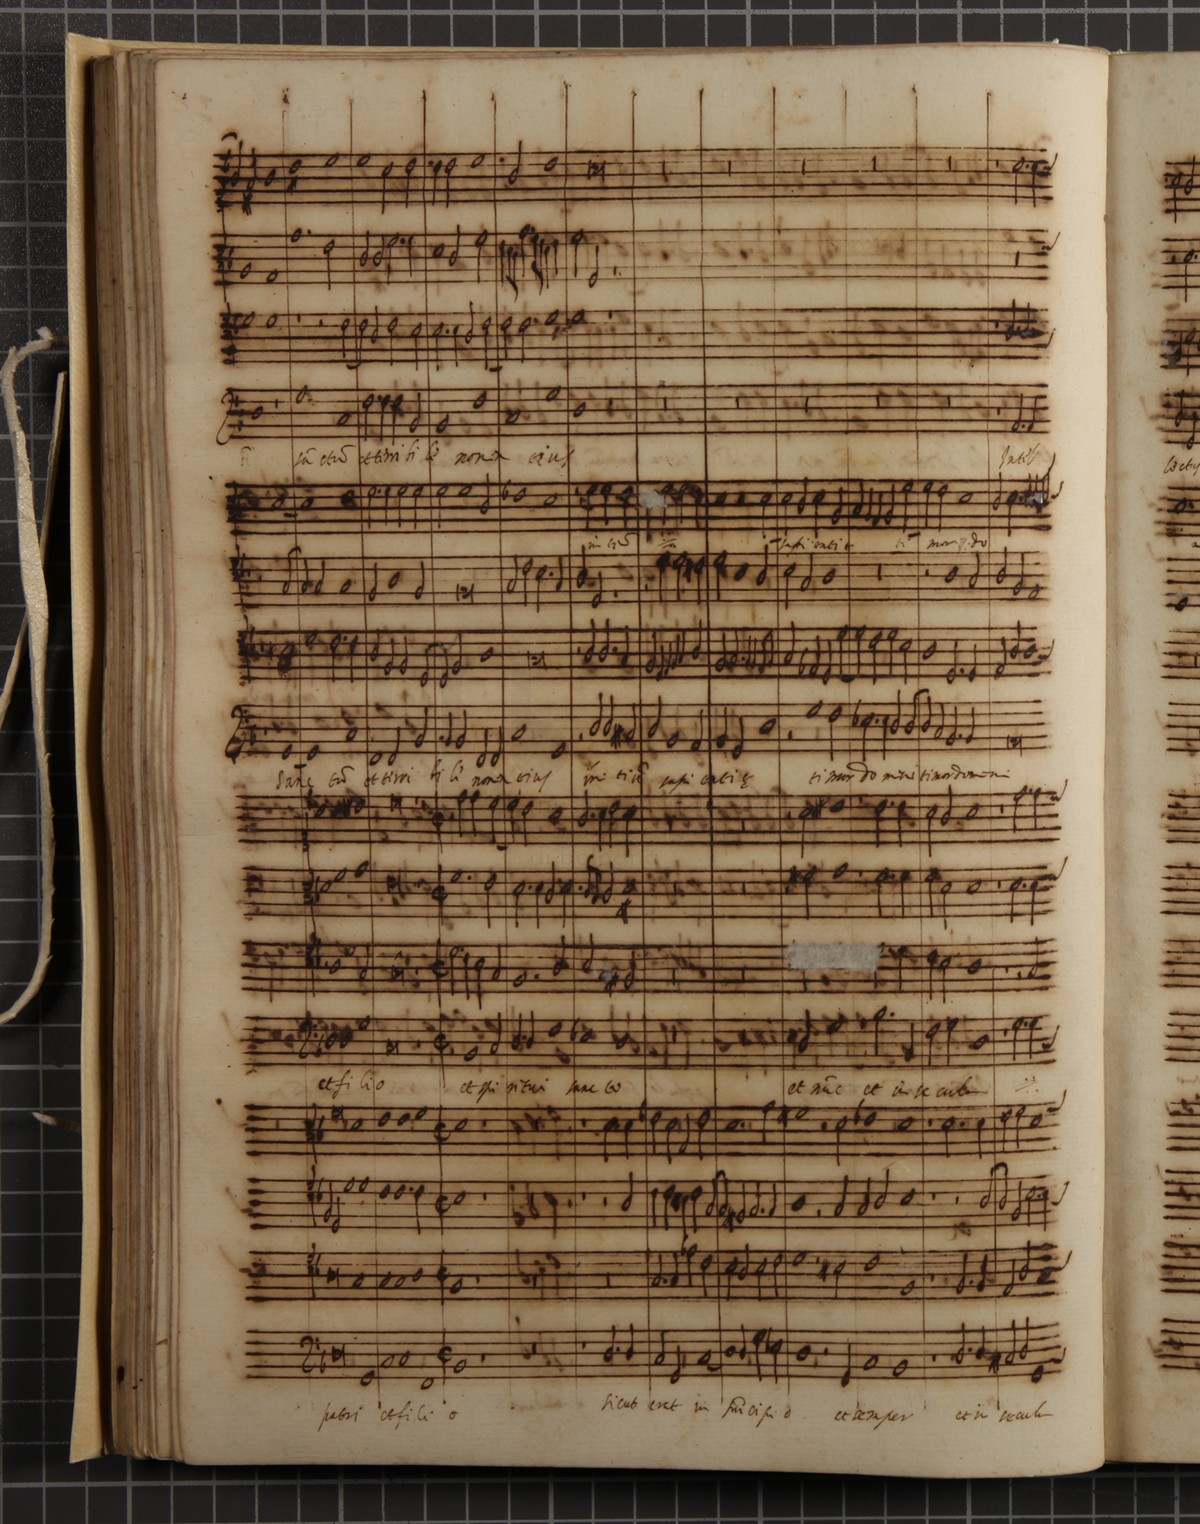 sãctũ et terribile nomen eius
initiũ sapientie timor do
Sanctũ et terribile nomen eius initiũ sapientię timor domini timor domini
et filio et spiritui sancto et nũc et in secula
patri et filio Sicut erat in principio et semper et in secula